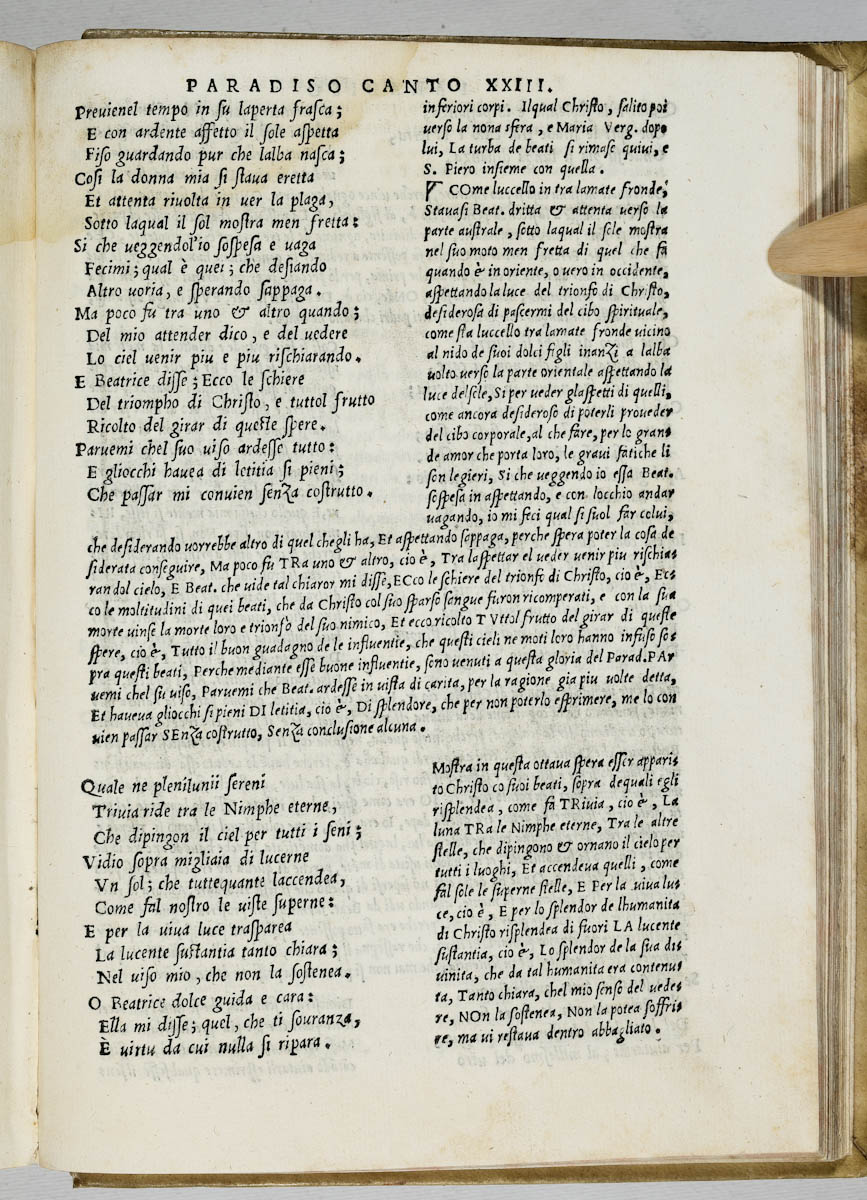 PARADISO CANTO XXIII.
Preuienel tempo in su laperta frasca;
E con ardente affetto il sole aspetta
Fiso guardando pur che lalba nasca;
Cosi la donna mia si staua eretta
Et attenta riuolta in uer la plaga,
Sotto laqual il sol mostra men fretta:
Si che ueggendol'io sospesa e uaga
Fecimi; qual è quei; che desiando
Altro uoria, e sperando sappaga.
Ma poco fu tra uno & altro quando;
Del mio attender dico, e del uedere
Lo ciel uenir piu e piu rischiarando.
E Beatrice disse; Ecco le schiere
Del triompho di Christo, e tuttol frutto
Ricolto del girar di queste spere.
Paruemi chel suo uiso ardesse tutto:
E gliocchi hauea di letitia si pieni;
Che passar mi conuien senza costrutto.
inferiori corpi. Ilqual Christo, salito poi
uerso la nona sfera, e Maria Verg. dopo
lui, La turba de beati si rimase quiui, e
S. Piero insieme con quella.
COme luccello in tra lamate fronde,
Stauasi Beat. dritta & attenta uerso la
parte australe, sotto laqual il sole mostra
nel suo moto men fretta di quel che fa
quando è in oriente, o uero in occidente,
aspettando la luce del trionfo di Christo,
desiderosa di pascermi del cibo spirituale,
come sta luccello tra lamate fronde uicino
al nido de suoi dolci figli inanzi a lalba
uolto uerso la parte orientale aspettando la
luce del sole, Si per ueder glaspetti di quelli,
come ancora desideroso di poterli proueder
del cibo corporale, al che fare, per lo gran
de amor che porta loro, le graui fatiche li
son legieri, Si che ueggendo io essa Beat.
sospesa in aspettando, e con locchio andar
uagando, io mi feci qual si suol far colui,
che desiderando uorrebbe altro di quel chegli ha, Et aspettando sappaga, perche spera poter la cosa de
siderata conseguire, Ma poco fu TRa uno & altro, cio è, Tra laspettar el ueder uenir piu rischia-
ran dol cielo, E Beat. che uide tal chiaror mi disse, ECco le schiere del trionfo di Christo, cio è, Ec-
co le moltitudini di quei beati, che da Christo col suo sparso sangue furon ricomperati, e con la sua
morte uinse la morte loro e trionfò del suo nimico, Et ecco ricolto TVttol frutto del girar di queste
spere, cio è, Tutto il buon guadagno de le influentie, che questi cieli ne moti loro hanno infuso so-
pra questi beati, Perche mediante esse buone influentie, sono uenuti a questa gloria del Parad. PAr
uemi chel su uiso, Paruemi che Beat. ardesse in uista di carita, per la ragione gia piu uolte detta,
Et haueua gliocchi si pieni DI letitia, cio è, Di splendore, che per non poterlo esprimere, me lo con
uien passar SEnza costrutto, Senza conclusione alcuna.
Quale ne plenilunii sereni
Triuia ride tra le Nimphe eterne,
Che dipingon il ciel per tutti i seni;
Vidio sopra migliaia di lucerne
Vn sol; che tuttequante laccendea,
Come fal nostro le uiste superne:
E per la uiua luce trasparea
La lucente sustantia tanto chiara;
Nel uiso mio, che non la sostenea.
O Beatrice dolce guida e cara:
Ella mi disse; quel, che ti souranza,
È uirtu da cui nulla si ripara.
Mostra in questa ottaua spera esser appari-
to Christo co suoi beati, sopra dequali egli
risplendea, come fa TRiuia, cio è, La
luna TRa le Nimphe eterne, Tra le altre
stelle, che dipingono & ornano il cielo per
tutti i luoghi, Et accendeua quelli, come
fal sole le superne stelle, E Per la uiua lu-
ce, cio è, E per lo splendor de lhumanita
di Christo risplendea di fuori LA lucente
sustantia, cio è, Lo splendor de la sua di-
uinita, che da tal humanita era contenu-
ta, Tanto chiara, chel mio senso del uede-
re, NOn la sostenea, Non la potea soffri-
re, ma ui restaua dentro abbagliato.